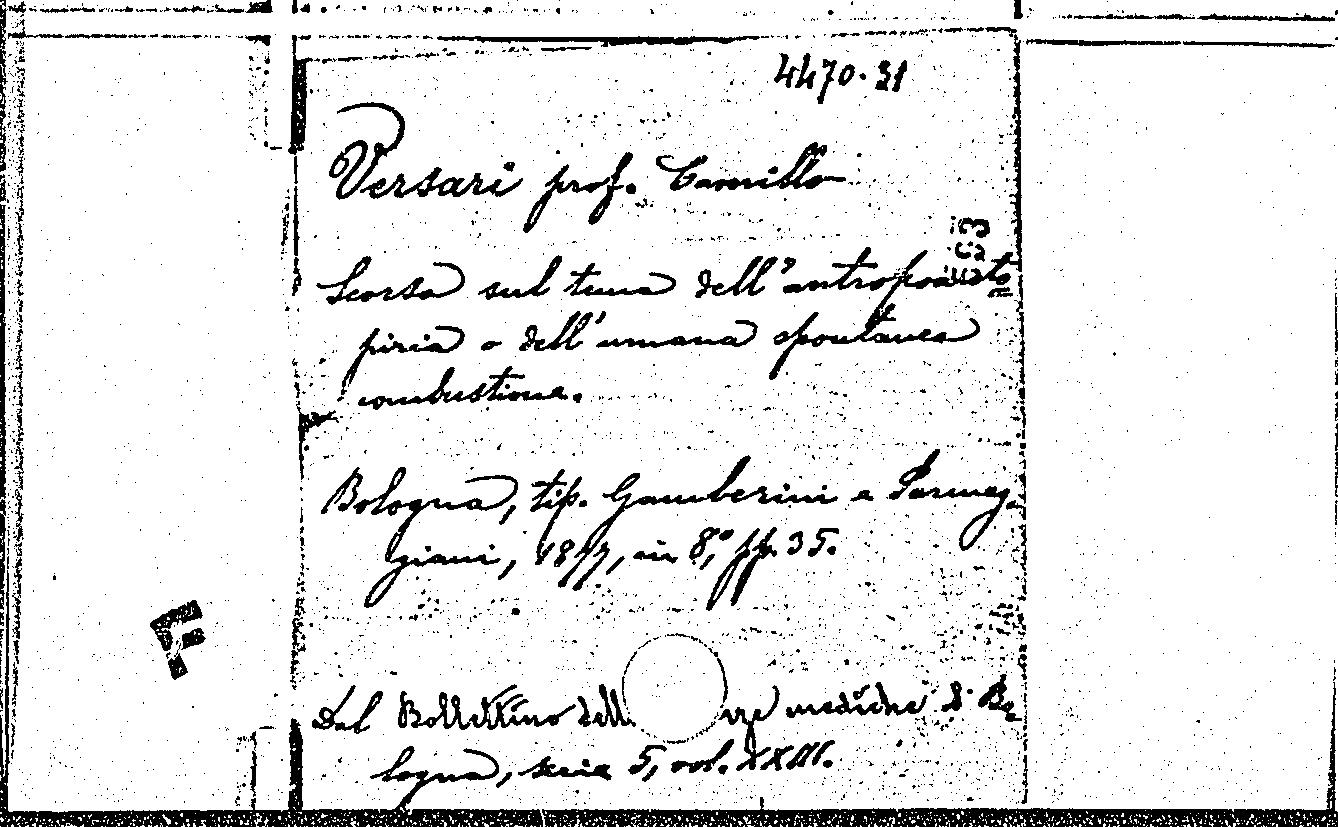 4470.31
Versari prof. Camillo
Scorsa sul tema dell'antropo
piria o dell'umana spontanea
combustione.
Bologna, tip. Gamberini e Parmeg-
giani, 1877, in 8,° pp. 35.
F
Dal Bollettino dell nze mediche di Bo
logna, serie 5, vol. XXIII.